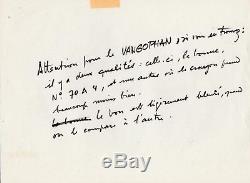 Attention pour le VANGOPHAN
il y a deux qualités : celle-ci, la bonne,
N° 70 A 4, et une autre où le crayon prend
beaucoup moins bien.
la bonne le bon est légèrement bleuté, quand
on le compare à l'autre.